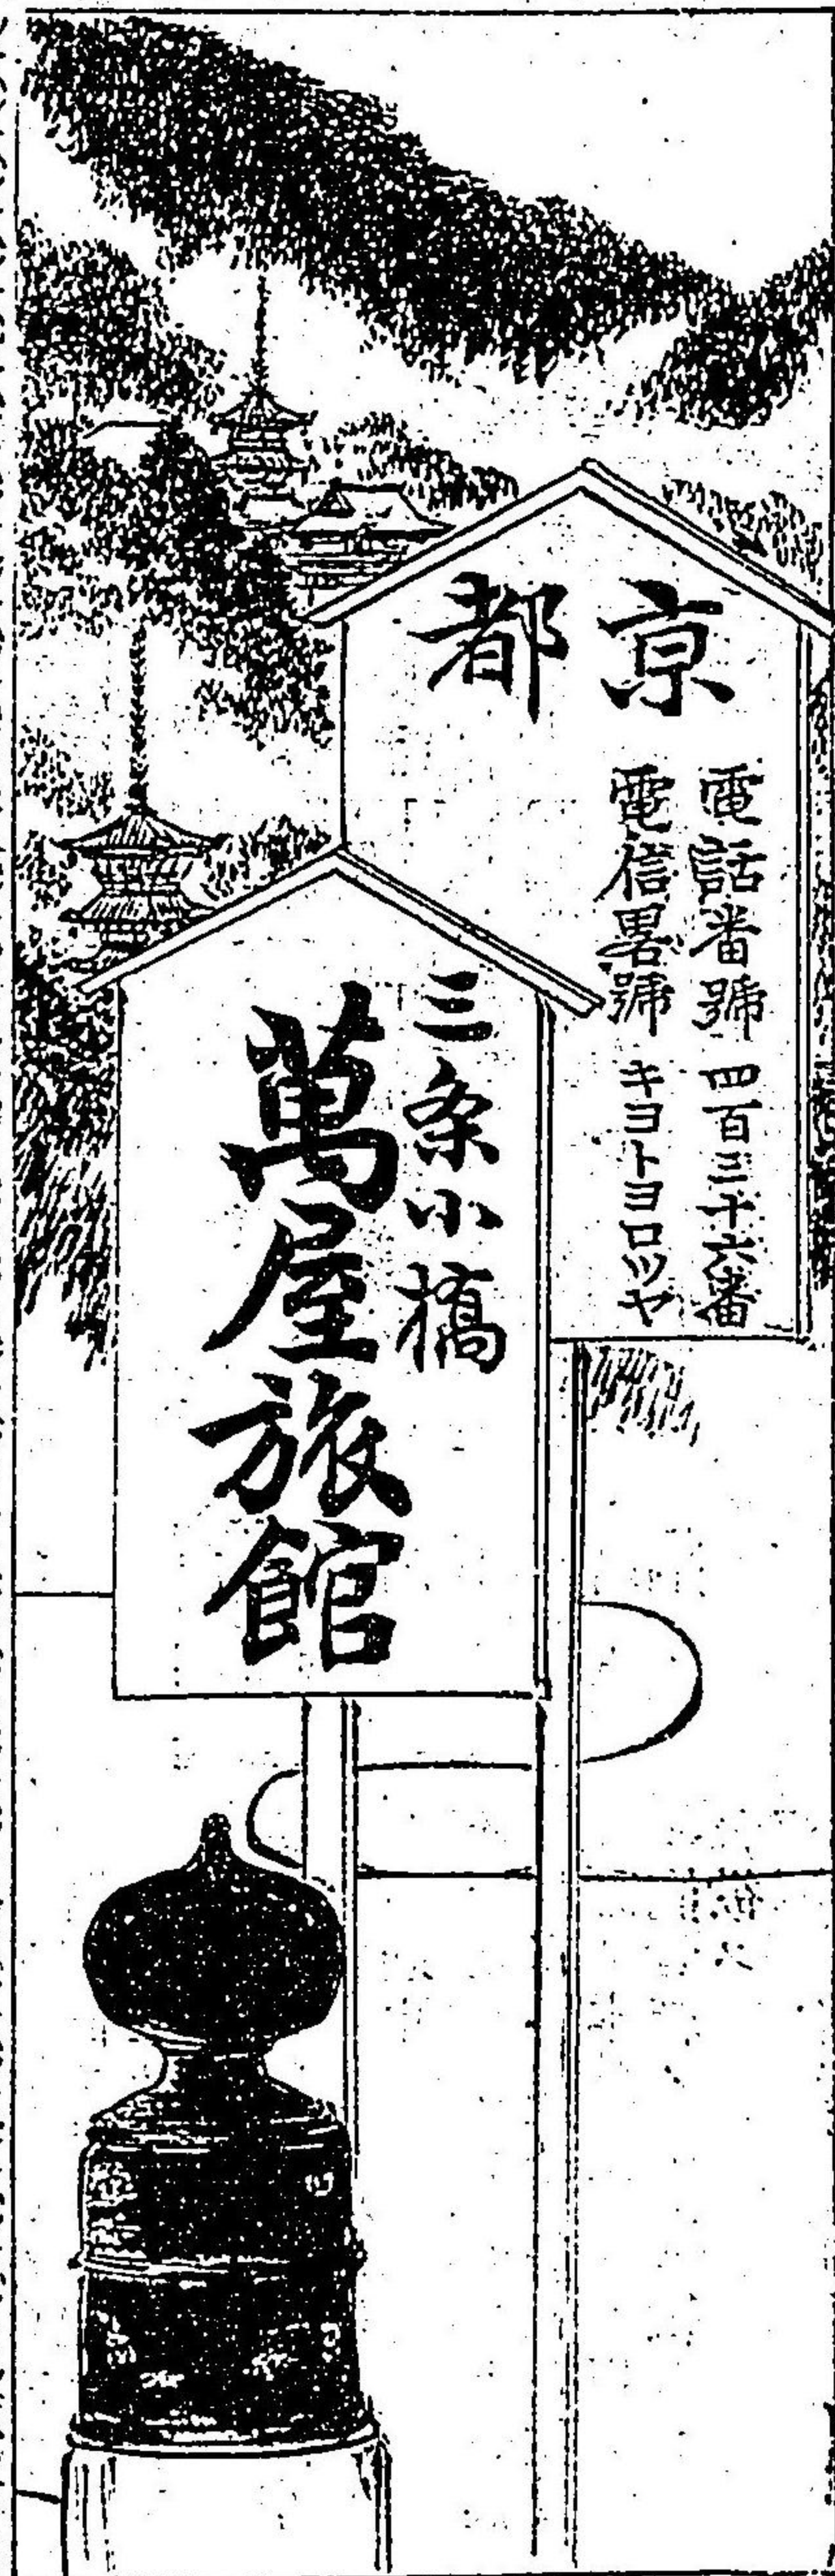 京都
電話番號 四百三十六番
電信畧號 キヨトヨロツヤ
三条小橋
萬屋旅館